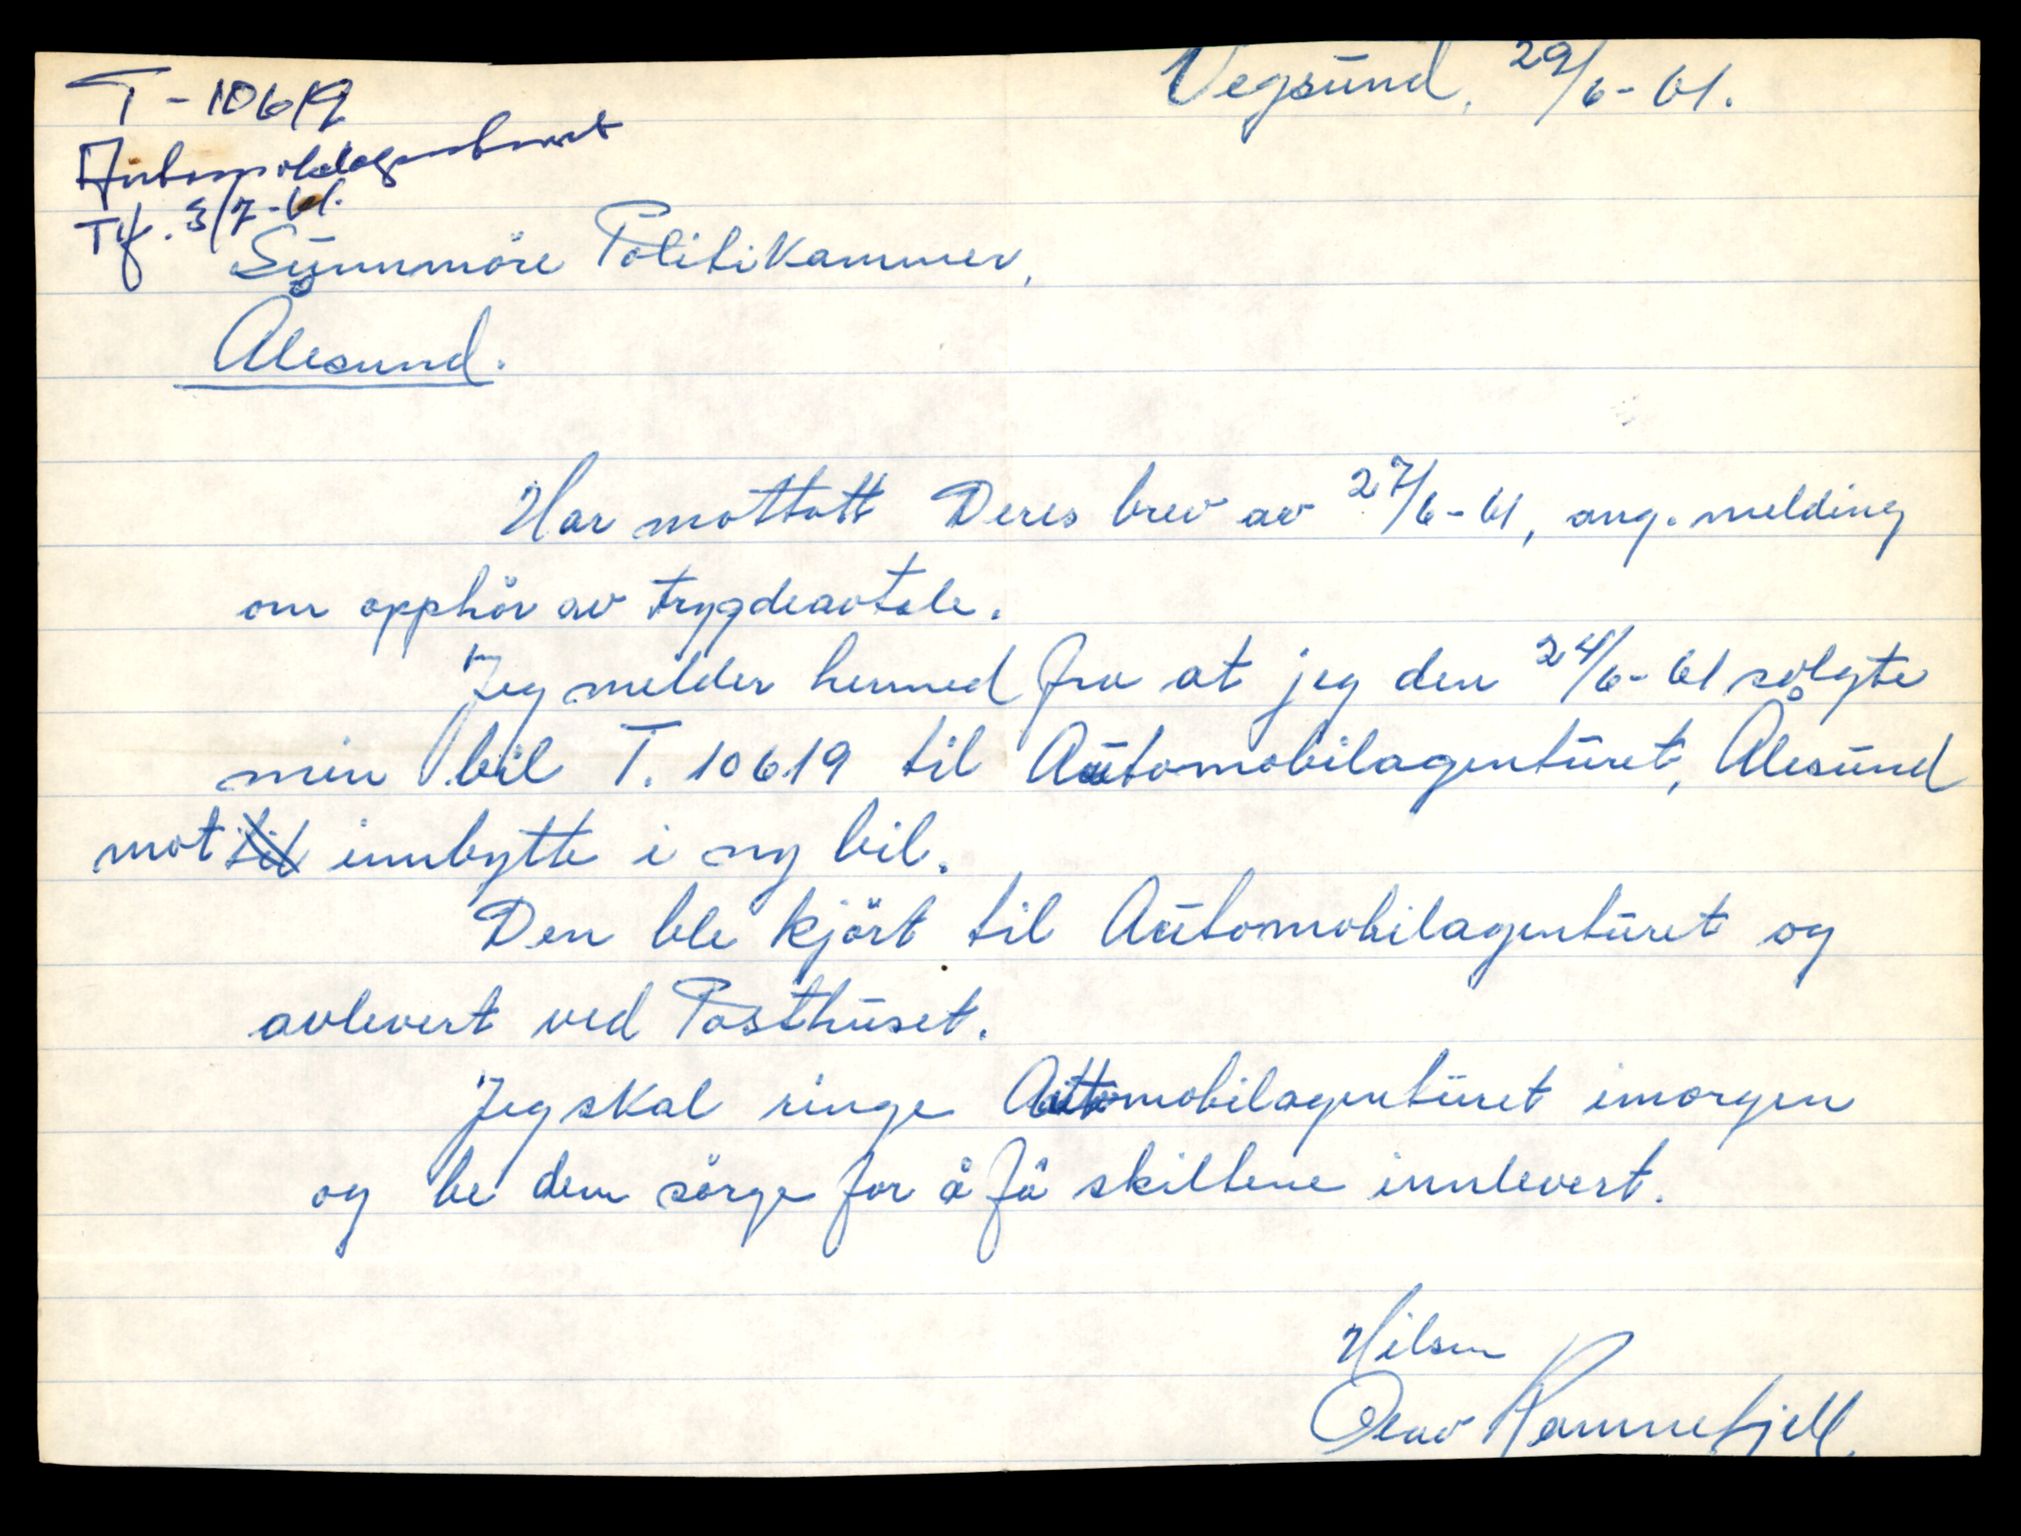 Vegsund, 29/6-61.
T-10619
Automobilagenturet
Tlf. 3/7-61.
Sünnmöre Politikammer,
Ålesund.
Har mottatt Deres brev av 27/6-61, ang. melding
om opphör av trygdeavtale.
Jeg melder hermed fra at jeg den 24/6-61 solgte
min bil T. 10619 til Automobilagenturet, Ålesund
mot til innbytte i ny bil.
Den ble kjört til Automobilagenturet og
avlevert ved Posthuset.
Jeg skal ringe Automobilagenturet imorgen
og be dem sörge for å få skiltene innlevert.
Hilsen
Ramnefjell